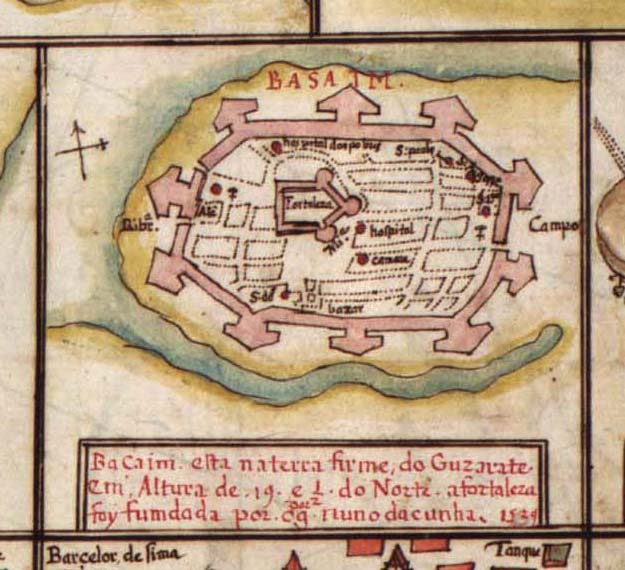 BASAIM.
hospital dos pobus
S: paulo
Fortaleza
Ribr.ª
Campo
hospital
camara
S. dē
bazar
Bacaim. esta na terra firme, do Guzarate.
Em, Altura de .19. e ½. do Norte. a fortaleza
foy fumdada por. nuno dacunha. 1529
Barcelor, de sima
Tanque